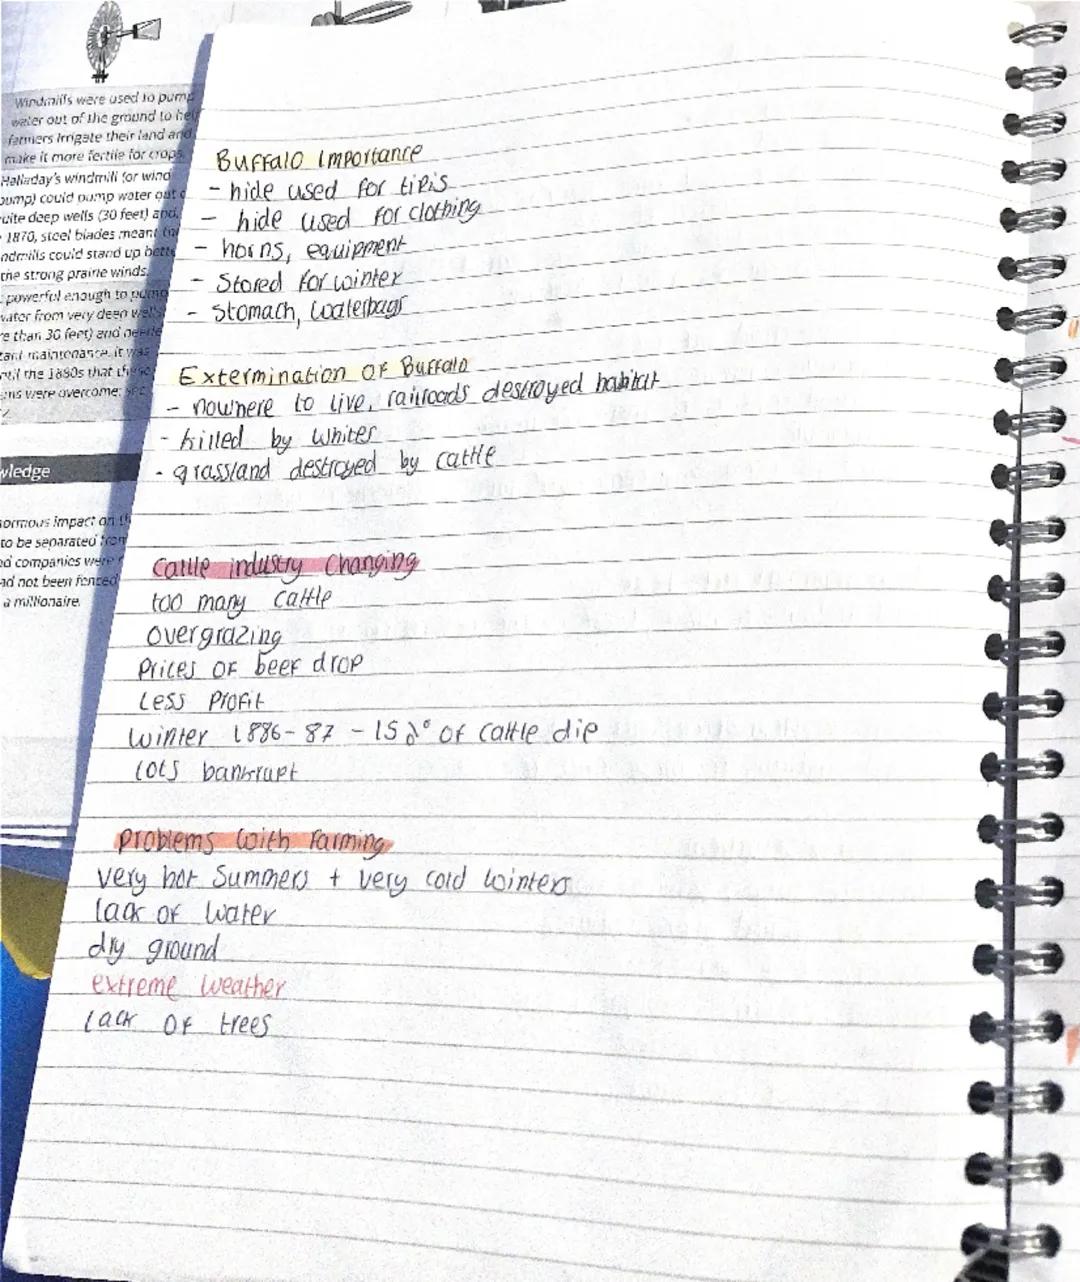 Windmills were used to pump
water out of the ground to
farmers irrigate their land and
make it more fertile for crops.
Halladay's windmill (or wind
pump) could pump water out
quite deep wells (30 feet) and,
1870, steel blades meant
windmills could stand up
the strong prairie winds.
powerful enough to pump
water from very deep wells
than 30 feet) and
maintenance. It was
the 1880s that
were overcome:
wledge
enormous impact on
to be separated from
companies were
had not been fenced
a millionaire.
Buffalo Importance
- hide used for tipis
- hide used for clothing
- horns, equipment
- Stored for winter
- Stomach, waterbags
Extermination of Buffalo
- nowhere to live, railroads destroyed habitat
- killed by whites
- grassland destroyed by cattle
Cattle industry Changing
too many cattle
overgrazing
Prices of beef drop
Less Profit
Winter 1886-87 - 15% of cattle die
lots bankrupt
Problems with Farming
very hot Summers + very cold winters
lack of water
dry ground
extreme weather
lack of trees